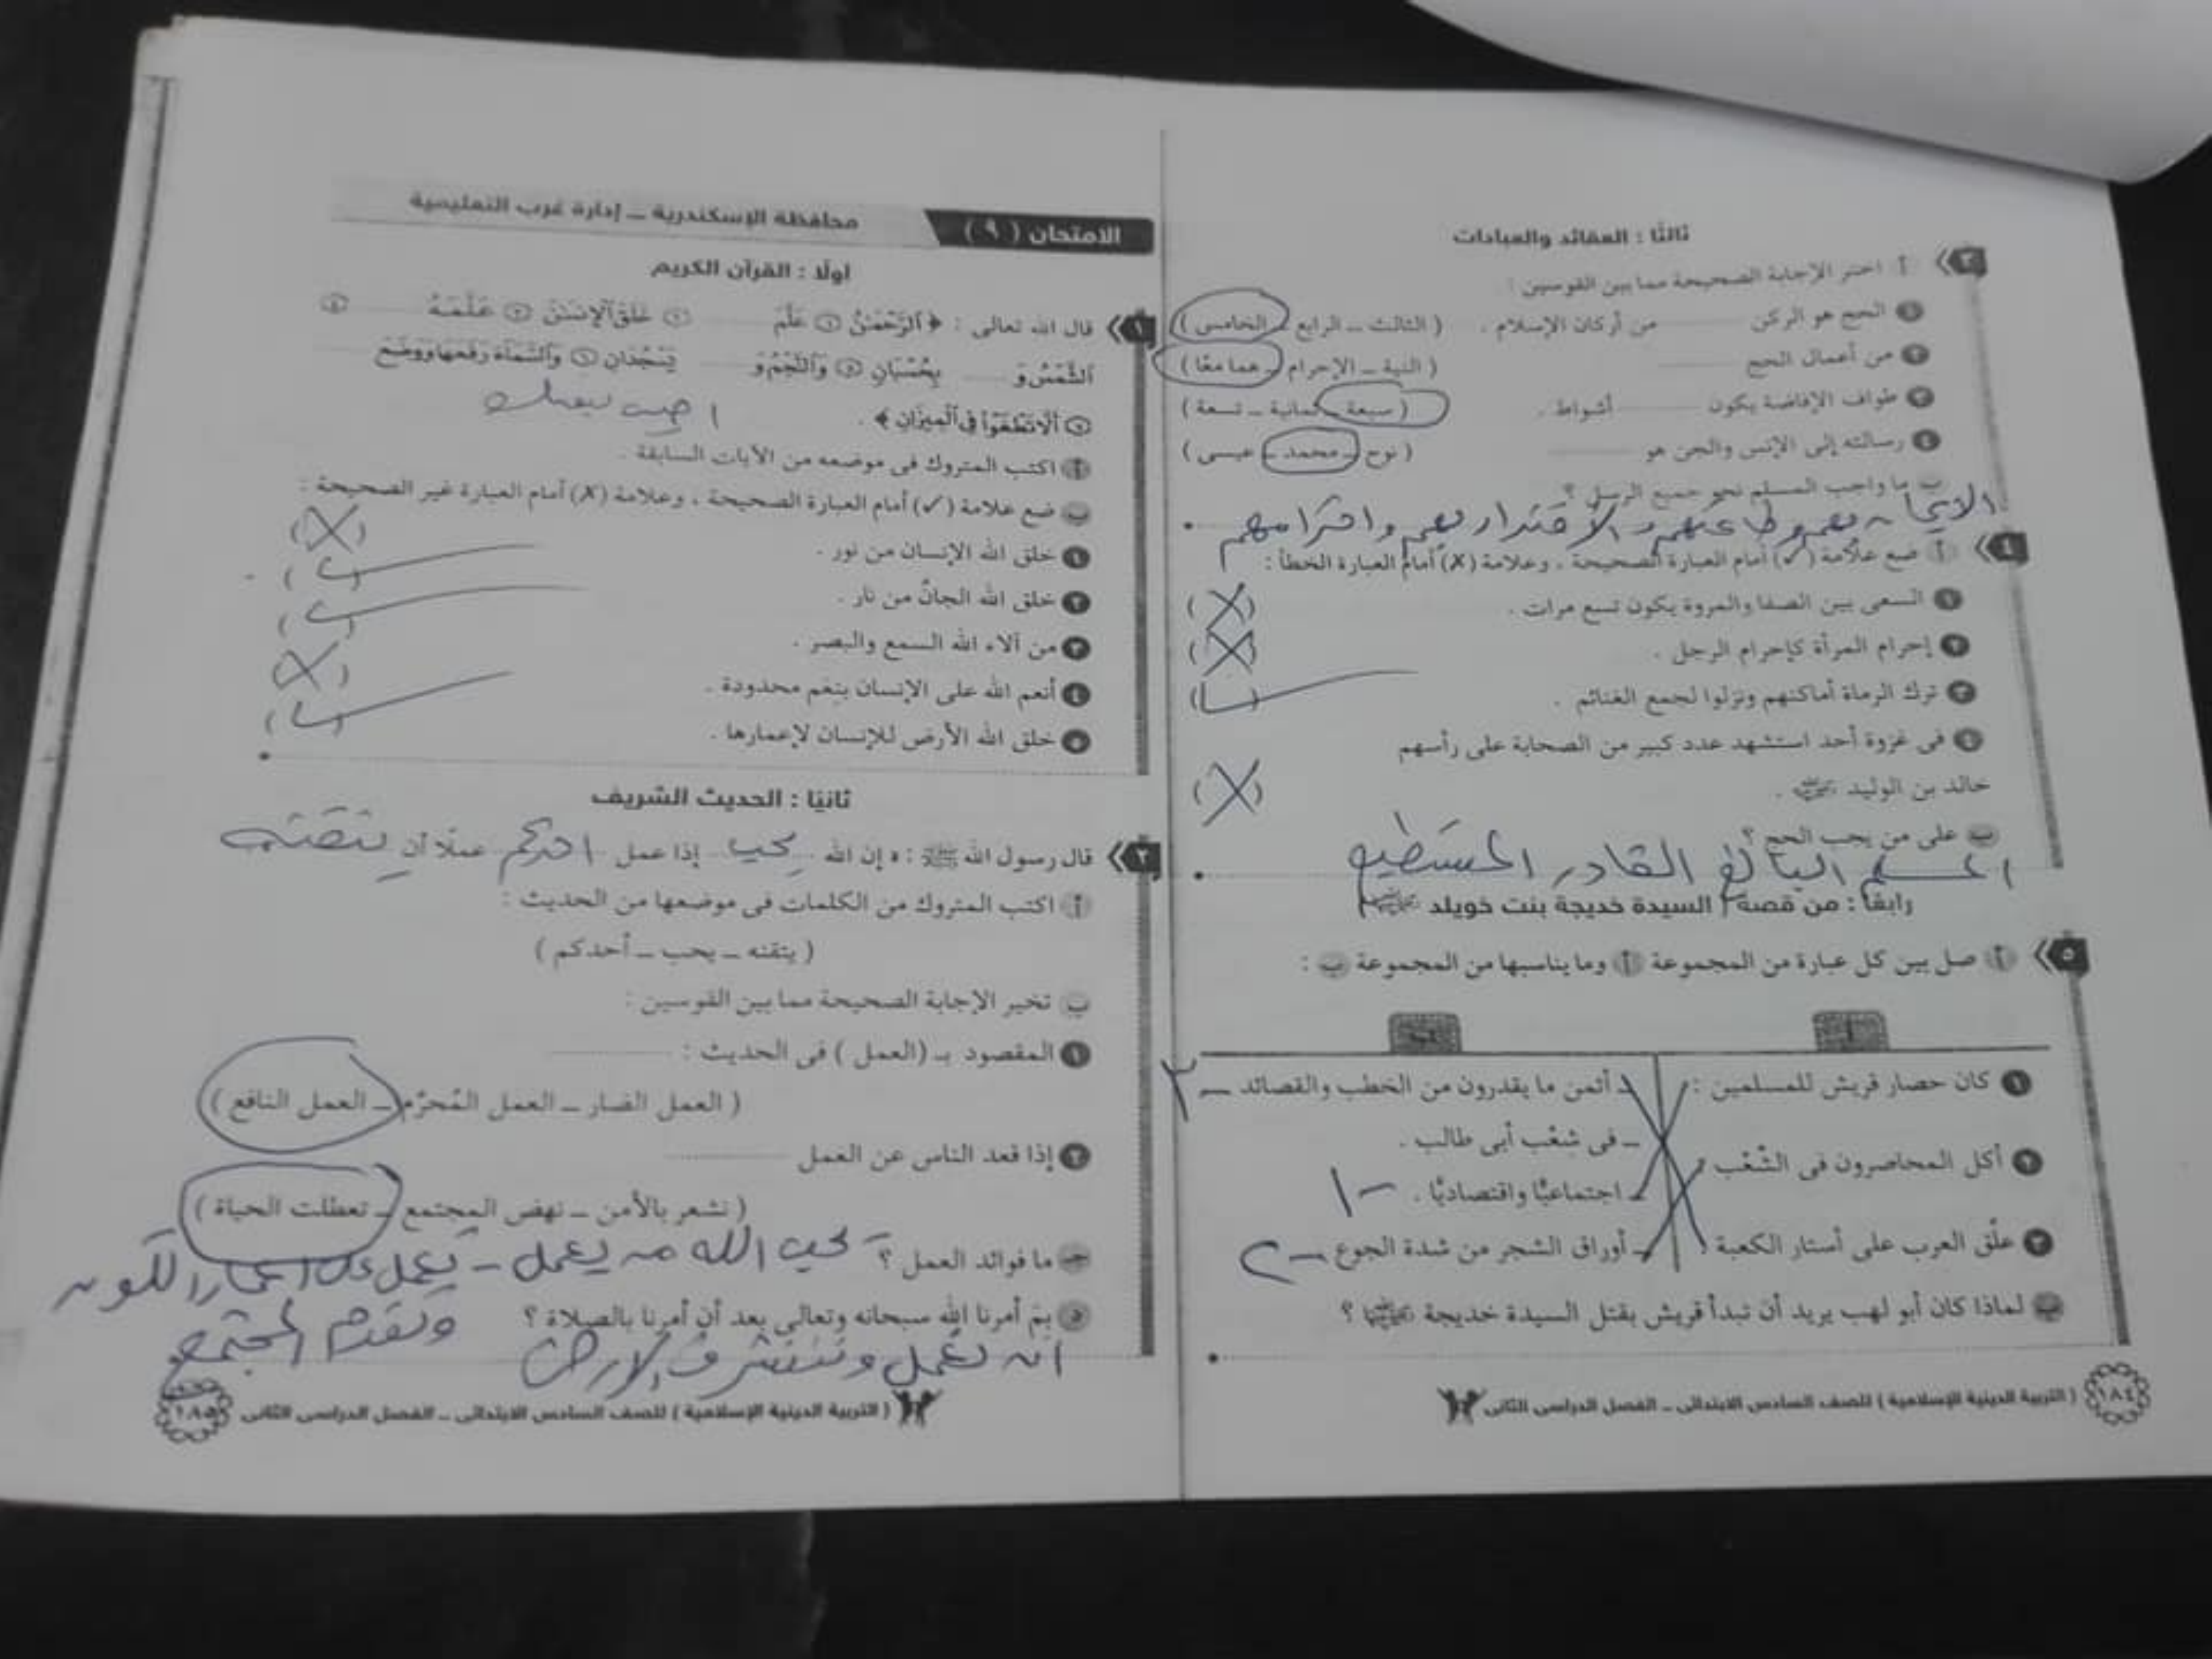 ثالثًا : العقائد والعبادات
٣ أ اختر الإجابة الصحيحة مما بين القوسين :
١ الحج هو الركن ........ من أركان الإسلام . ( الثالث – الرابع – الخامس )
٢ من أعمال الحج ........ ( النية – الإحرام – هما معًا )
٣ طواف الإفاضة يكون ........ أشواط . ( سبعة – ثمانية – تسعة )
٤ رسالته إلى الإنس والجن هو ........ ( نوح – محمد – عيسى )
ب ما واجب المسلم نحو جميع الرسل ؟
الايمان بهم وطاعتهم والاقتداء بهم واحترامهم
٤ أ ضع علامة (✓) أمام العبارة الصحيحة ، وعلامة (X) أمام العبارة الخطأ :
١ السعى بين الصفا والمروة يكون تسع مرات . (X)
٢ إحرام المرأة كإحرام الرجل . (X)
٣ ترك الرماة أماكنهم ونزلوا لجمع الغنائم . (✓)
٤ فى غزوة أحد استشهد عدد كبير من الصحابة على رأسهم
خالد بن الوليد . (X)
ب على من يجب الحج ؟
المسلم البالغ القادر المستطيع
رابعًا : من قصة السيدة خديجة بنت خويلد
٥ أ صل بين كل عبارة من المجموعة أ وما يناسبها من المجموعة ب :
أ ب
١ كان حصار قريش للمسلمين : – أثمن ما يقدرون من الخطب والقصائد – ٣
– فى شعْب أبى طالب .
٢ أكل المحاصرون فى الشِّعْب – اجتماعيًّا واقتصاديًّا . – ١
٣ علّق العرب على أستار الكعبة : – أوراق الشجر من شدة الجوع – ٢
ب لماذا كان أبو لهب يريد أن تبدأ قريش بقتل السيدة خديجة ؟
١٨٤ ( التربية الدينية الإسلامية ) للصف السادس الابتدائى – الفصل الدراسى الثانى
الامتحان ( ٩ ) محافظة الإسكندرية – إدارة غرب التعليمية
أولًا : القرآن الكريم
١ قال الله تعالى : ﴿ ٱلرَّحْمَٰنُ ١ عَلَّمَ ........ ٢ خَلَقَ ٱلْإِنسَٰنَ ٣ عَلَّمَهُ ........ ٤
ٱلشَّمْسُ وَ ........ بِحُسْبَانٍ ٥ وَٱلنَّجْمُ وَ ........ يَسْجُدَانِ ٦ وَٱلسَّمَآءَ رَفَعَهَا وَوَضَعَ
........ ٧ أَلَّا تَطْغَوْا۟ فِى ٱلْمِيزَانِ ﴾ .
أ اكتب المتروك فى موضعه من الآيات السابقة .
ب ضع علامة (✓) أمام العبارة الصحيحة ، وعلامة (X) أمام العبارة غير الصحيحة :
١ خلق الله الإنسان من نور . (X)
٢ خلق الله الجانّ من نار . (✓)
٣ من آلاء الله السمع والبصر . (✓)
٤ أنعم الله على الإنسان بنِعَم محدودة . (X)
٥ خلق الله الأرض للإنسان لإعمارها . (✓)
ثانيًا : الحديث الشريف
٢ قال رسول الله ﷺ : « إن الله يحب إذا عمل احدكم عملًا أن يتقنه
أ اكتب المتروك من الكلمات فى موضعها من الحديث :
( يتقنه – يحب – أحدكم )
ب تخير الإجابة الصحيحة مما بين القوسين :
١ المقصود بـ (العمل ) فى الحديث : ........
( العمل الضار – العمل المُحرَّم – العمل النافع )
٢ إذا قعد الناس عن العمل ........
( نشعر بالأمن – نهض المجتمع – تعطلت الحياة )
جـ ما فوائد العمل ؟ يحب الله من يعمل – يعمل على اعمار الكون
وتقدم المجتمع
د بمَ أمرنا الله سبحانه وتعالى بعد أن أمرنا بالصلاة ؟
ان نعمل وننتشر فى الارض
( التربية الدينية الإسلامية ) للصف السادس الابتدائى – الفصل الدراسى الثانى ١٨٥